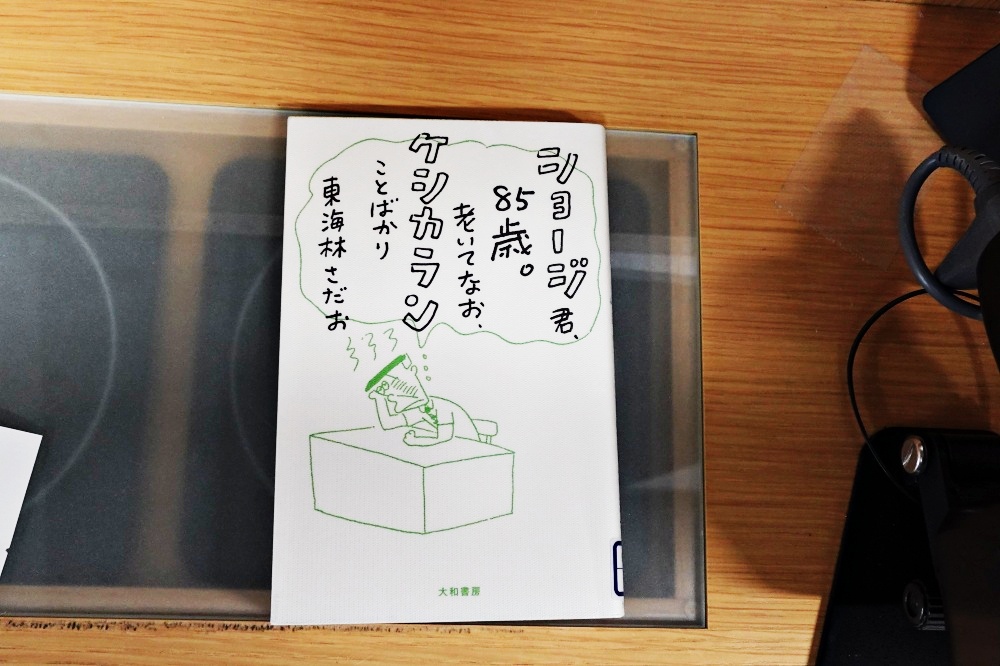 ショージ君、
85歳。
老いてなお、
ケシカラン
ことばかり
東海林さだお
大和書房